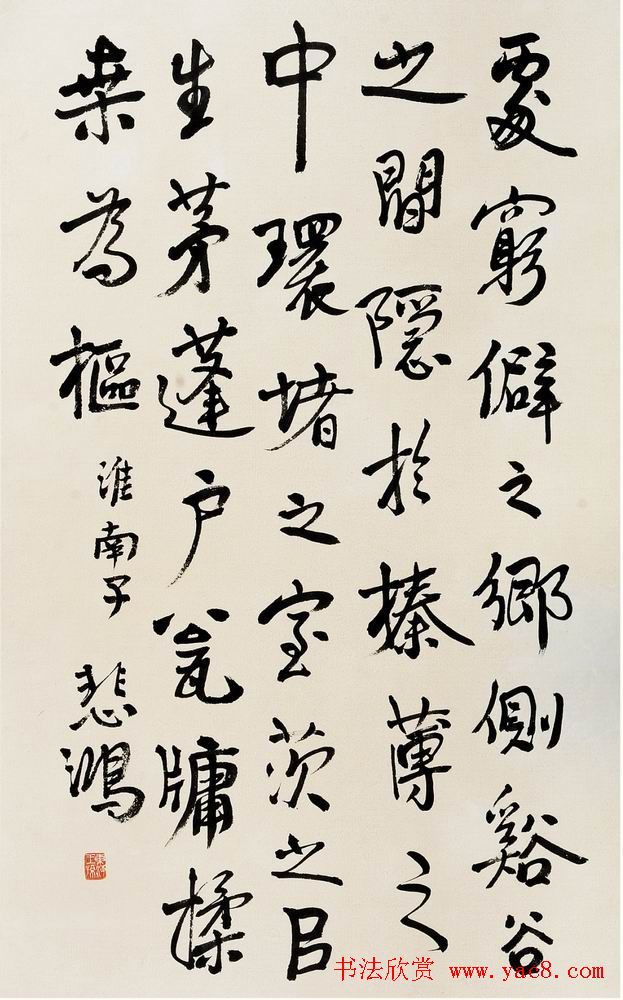 處窮僻之鄉側谿谷
之間隱於榛薄之
中環堵之室茨之以
生茅蓬户瓮牖揉
桑為樞
淮南子
悲鴻
书法欣赏 www.yac8.com